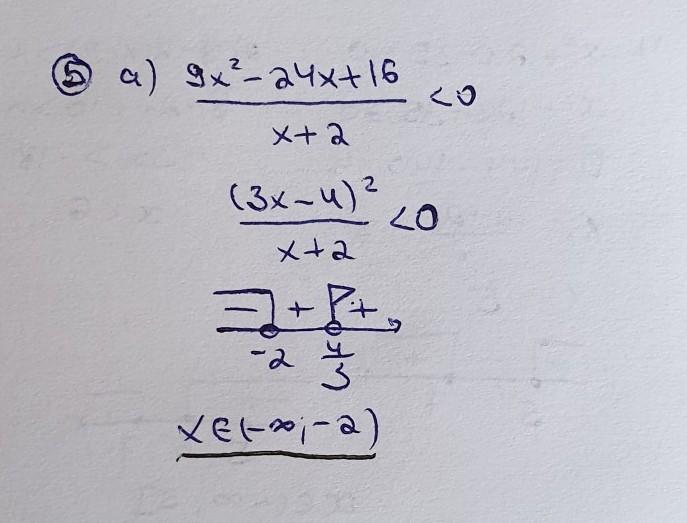 ⑤ a) 9x² - 24x + 16 / x + 2 < 0
(3x - 4)² / x + 2 < 0
- + +
-2 4/3
x ∈ (-∞; -2)